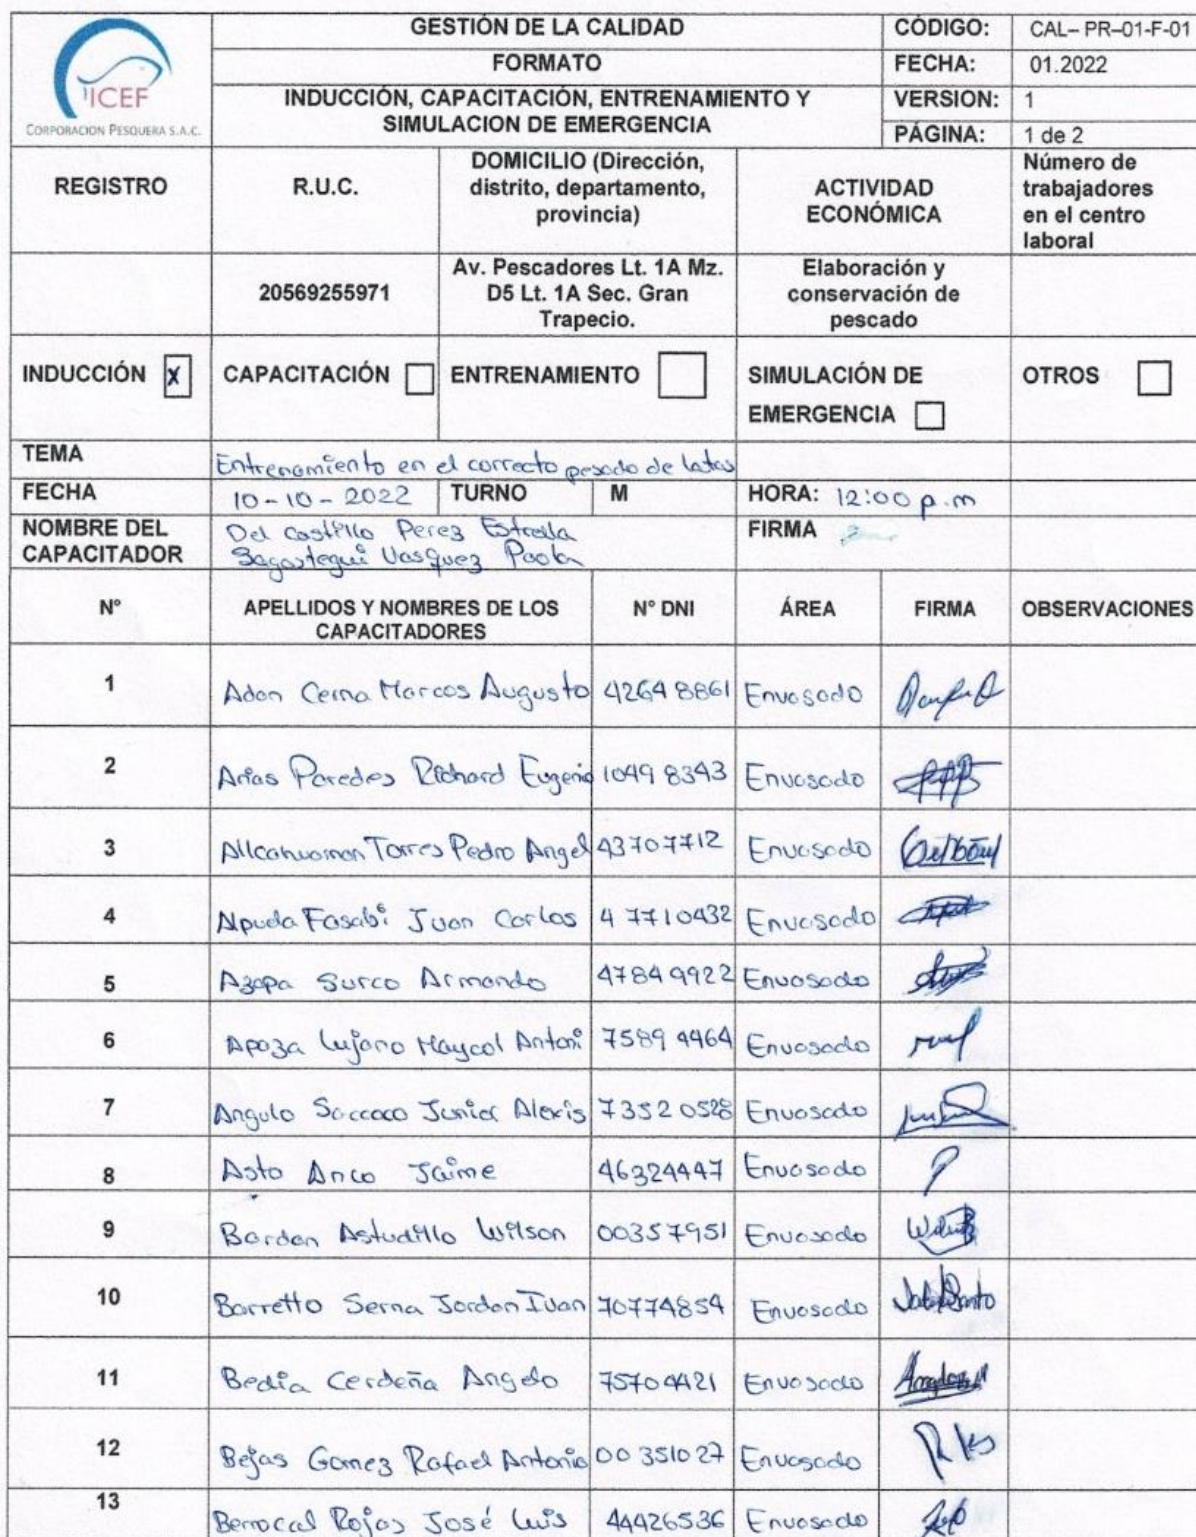 ICEF
CORPORACION PESQUERA S.A.C.
GESTIÓN DE LA CALIDAD
CÓDIGO: CAL– PR–01-F-01
FORMATO
FECHA: 01.2022
INDUCCIÓN, CAPACITACIÓN, ENTRENAMIENTO Y
SIMULACION DE EMERGENCIA
VERSION: 1
PÁGINA: 1 de 2
REGISTRO
R.U.C.
DOMICILIO (Dirección,
distrito, departamento,
provincia)
ACTIVIDAD
ECONÓMICA
Número de
trabajadores
en el centro
laboral
20569255971
Av. Pescadores Lt. 1A Mz.
D5 Lt. 1A Sec. Gran
Trapecio.
Elaboración y
conservación de
pescado
INDUCCIÓN X
CAPACITACIÓN
ENTRENAMIENTO
SIMULACIÓN DE
EMERGENCIA
OTROS
TEMA Entrenamiento en el correcto pesado de latas
FECHA 10-10-2022 TURNO M HORA: 12:00 p.m
NOMBRE DEL
CAPACITADOR
Del Castillo Perez Estrella
Sagastegui Vasquez Paola
FIRMA
N° APELLIDOS Y NOMBRES DE LOS
CAPACITADORES
N° DNI ÁREA FIRMA OBSERVACIONES
1 Adan Cerna Marcos Augusto 42648861 Envasado
2 Arias Paredes Richard Eugenio 10498343 Envasado
3 Allcahuaman Torres Pedro Angel 43707712 Envasado
4 Apuela Fasabi Juan Carlos 47710432 Envasado
5 Azapa Surco Armando 47849922 Envasado
6 Apaza Lujano Maycol Antoni 75894464 Envasado
7 Angulo Saccaco Junior Alexis 73520528 Envasado
8 Asto Anco Jaime 46324447 Envasado
9 Bardan Astudillo Wilson 00357951 Envasado
10 Barretto Serna Jordan Ivan 70774854 Envasado
11 Bedia Cerdeña Angelo 75704421 Envasado
12 Bejas Gomez Rafael Antonio 00351027 Envasado
13 Berrocal Rojas José Luis 44426536 Envasado